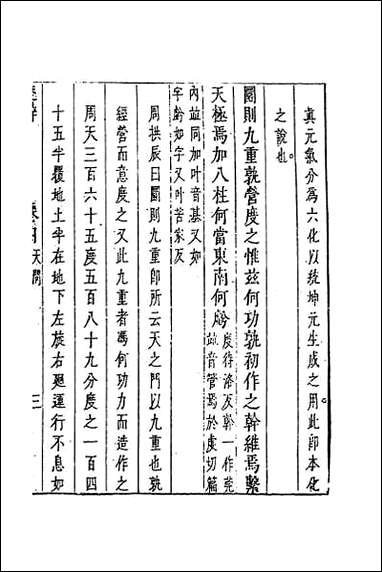 真元氣分為六化以統坤元生成之用此即本化
之說也
圜則九重孰營度之惟兹何功孰初作之幹維焉繫
天極焉加八柱何當東南何虧度待洛反幹一作筦
並音管焉於虔切篇
内並同加叶音基又如
字虧如字又叶苦家反
周拱辰曰圜則九重即所云天之門以九重也孰
經營而意度之又此九重者馮何功力而造作之
周天三百六十五度五百八十九分度之一百四
十五半覆地上半在地下左旋右廻運行不息如
卷四 天問
三